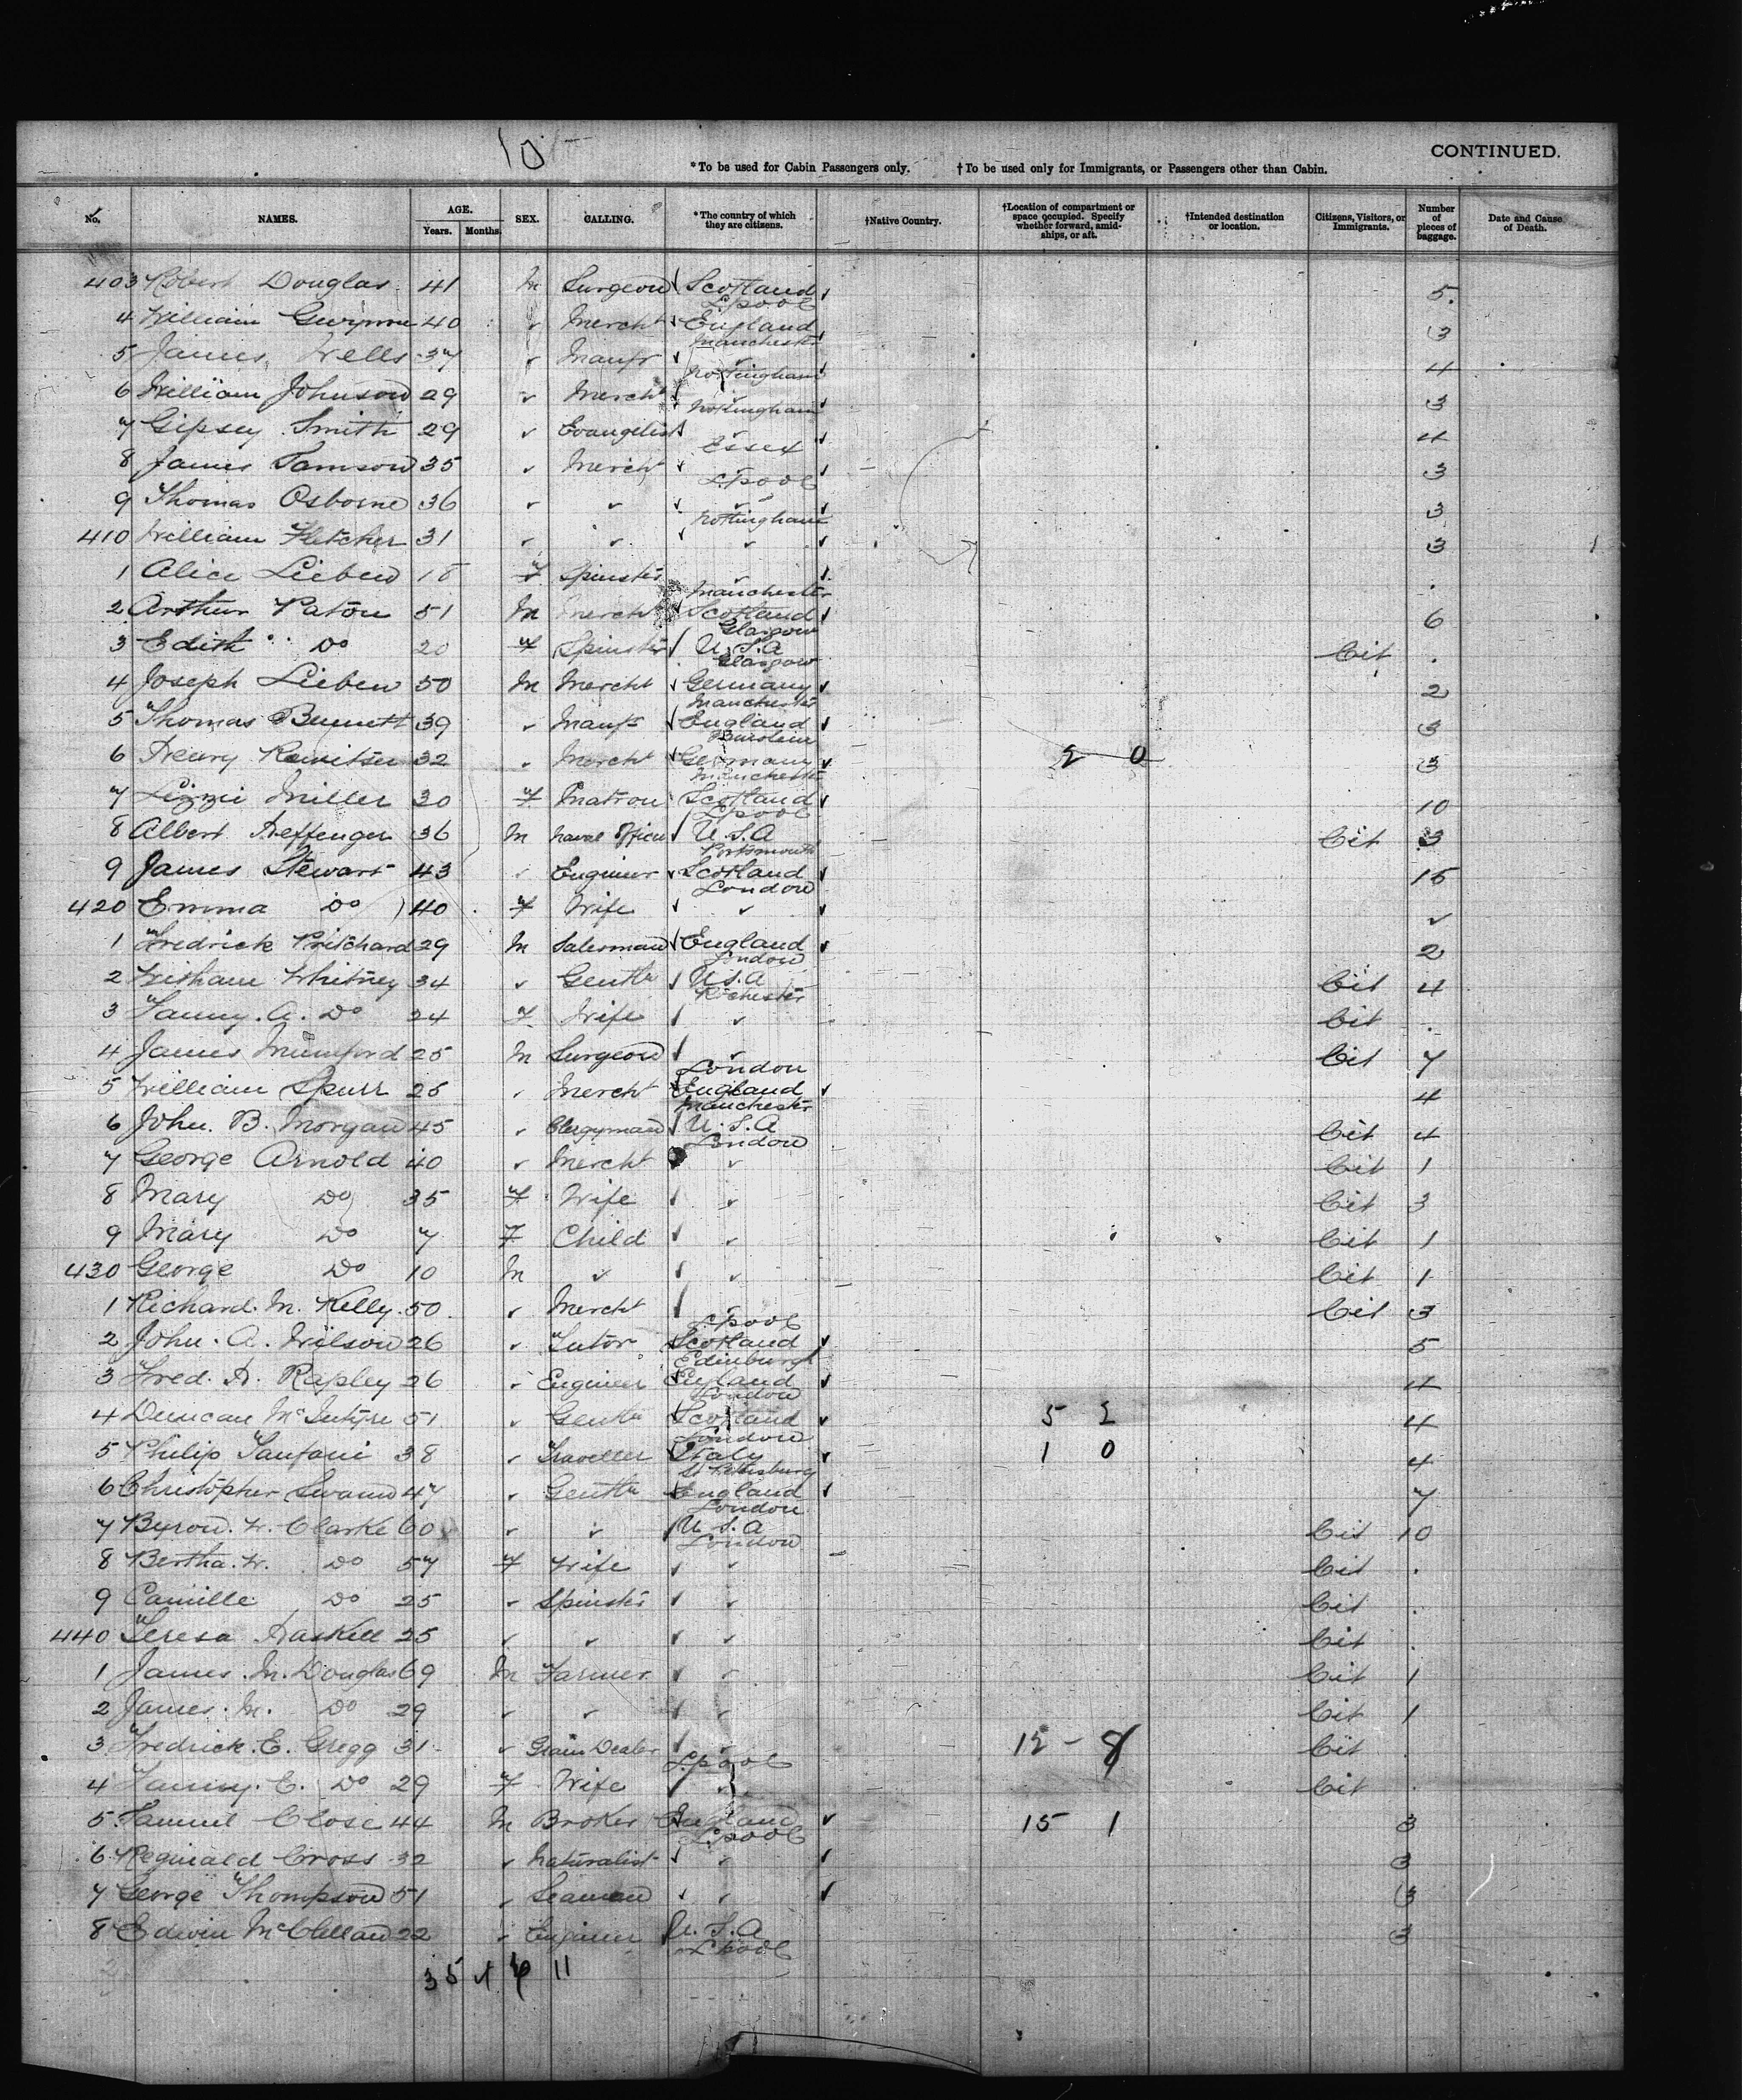 10
CONTINUED.
*To be used for Cabin Passengers only. †To be used only for Immigrants, or Passengers other than Cabin.
No. NAMES. AGE. Years. Months. SEX. CALLING. *The country of which they are citizens. †Native Country. †Location of compartment or space occupied. Specify whether forward, amidships, or aft. †Intended destination or location. Citizens, Visitors, or Immigrants. Number of pieces of baggage. Date and Cause of Death.
403 Robert Douglas 41 M Surgeon Scotland 5
L'pool
4 William Gwynne 40 Mercht England 3
Manchester
5 James Wells 37 Manfr 4
Nottingham
6 William Johnson 29 Mercht 3
Nottingham
7 Gipsey Smith 29 Evangelist 4
Essex
8 James Samson 35 Mercht 3
L'pool
9 Thomas Osborne 36 3
Nottingham
410 William Fletcher 31 3
1 Alice Lieben 18 F Spinster
Manchester
2 Arthur Paton 51 M Mercht Scotland 6
Glasgow
3 Edith Do 20 F Spinster U.S.A Cit
Glasgow
4 Joseph Lieben 50 M Mercht Germany 2
Manchester
5 Thomas Bennett 39 Manfr England 3
Burslem
6 Henry 32 Mercht Germany 2 0 3
Manchester
7 Lizzie Miller 30 F Matron Scotland 10
L'pool
8 Albert 36 M Naval Officer U.S.A Cit 3
Portsmouth
9 James Stewart 43 Engineer Scotland 15
London
420 Emma Do 40 F Wife
1 Fredrick Pritchard 29 M Salesman England 2
London
2 Whitney 34 Gentln U.S.A Cit 4
Rochester
3 Fanny. A. Do 24 F Wife Cit
4 James Mumford 25 M Surgeon Cit 7
London
5 William Spurr 25 Mercht England 4
Manchester
6 John. B. Morgan 45 Clergyman U.S.A Cit 4
London
7 George Arnold 40 Mercht Cit 1
8 Mary Do 35 F Wife Cit 3
9 Mary Do 7 F Child Cit 1
430 George Do 10 M Cit 1
1 Richard. M. Kelly 50 Mercht Cit 3
L'pool
2 John. A. Wilson 26 Tutor Scotland 5
Edinburgh
3 Fred. H. Rapley 26 Engineer England 4
London
4 Duncan McIntyre 51 Gentln Scotland 5 2 4
London
5 Philip Tanfani 38 Traveller Italy 1 0 4
St Petersburg
6 Christopher Swann 47 Gentln England 7
London
7 Byron. W. Clarke 60 U.S.A Cit 10
London
8 Bertha. W. Do 57 F Wife Cit
9 Camille Do 25 Spinster Cit
440 Teresa Haskell 25 Cit
1 James. M. Douglas 69 M Farmer Cit 1
2 James. M. Do 29 Cit 1
3 Fredrick. E. Gregg 31 Grain Dealer 12 - 8 Cit
L'pool
4 Fanny. E. Do 29 F Wife Cit
5 Samuel Close 44 M Broker England 15 1 3
L'pool
6 Reginald Cross 32 Naturalist 3
7 George Thompson 51 Seaman 3
8 Edwin McClelland 22 Engineer U.S.A 3
L'pool
35 11